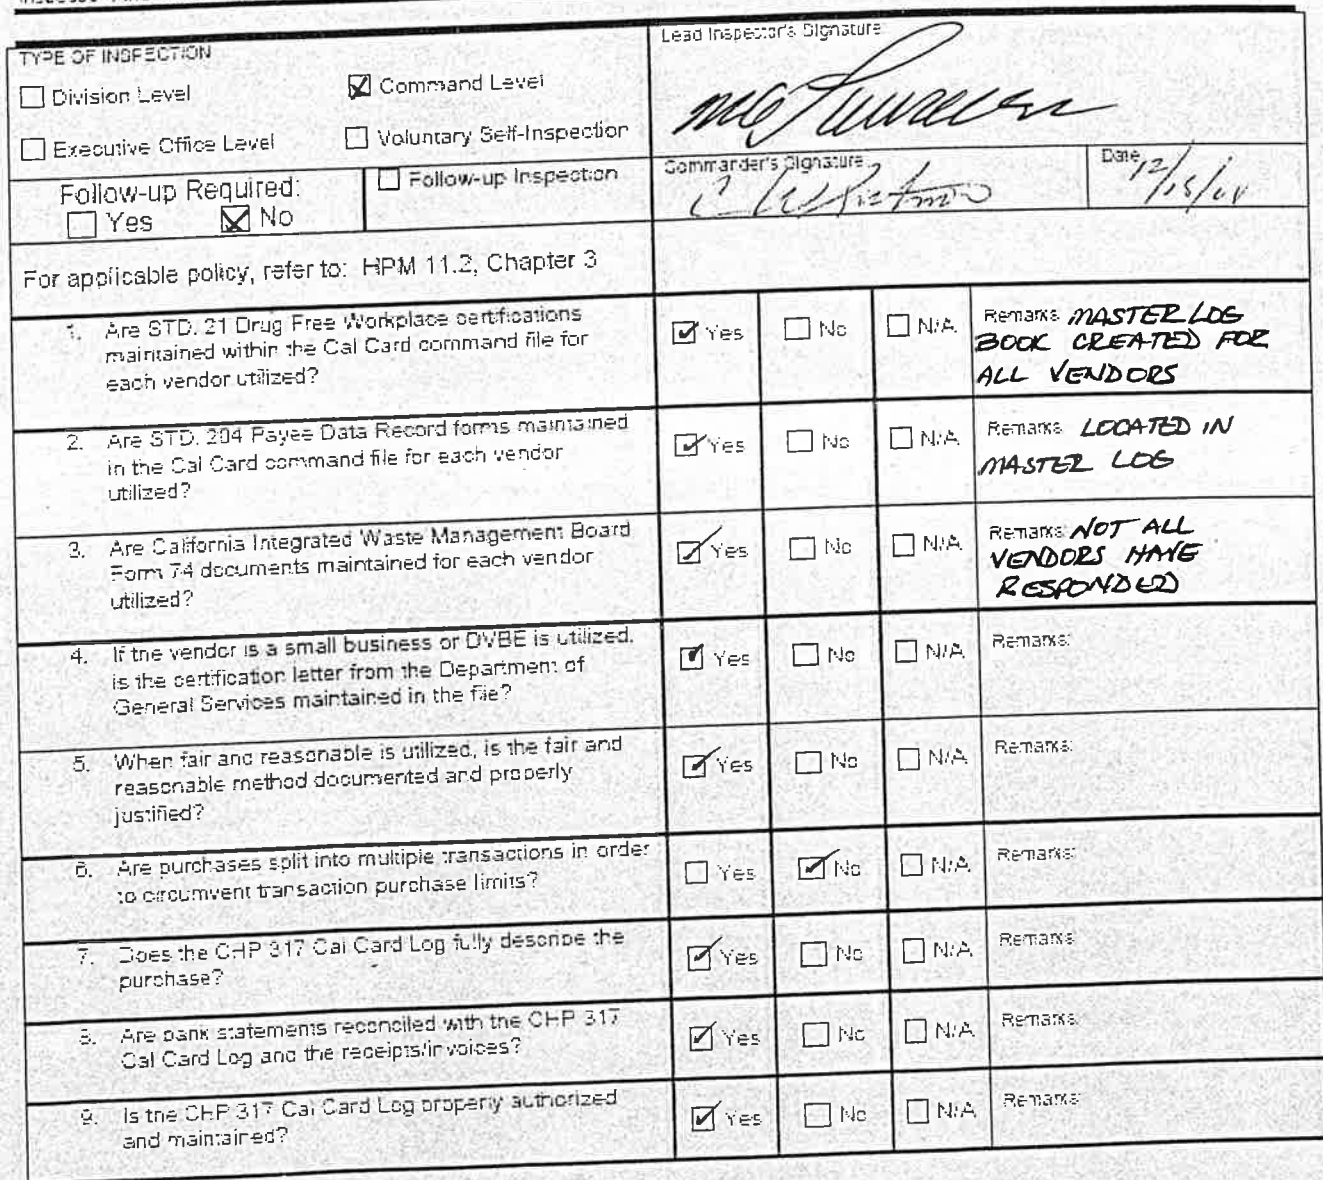 TYPE OF INSPECTION
Division Level
Command Level
Executive Office Level
Voluntary Self-Inspection
Lead Inspector's Signature:
Follow-up Required:
Yes
No
Follow-up Inspection
Commander's Signature:
Date
For applicable policy, refer to: HPM 11.2, Chapter 3
1. Are STD. 21 Drug Free Workplace certifications
maintained within the Cal Card command file for
each vendor utilized?
Yes No N/A
Remarks: MASTER LOG
BOOK CREATED FOR
ALL VENDORS
2. Are STD. 204 Payee Data Record forms maintained
in the Cal Card command file for each vendor
utilized?
Yes No N/A
Remarks: LOCATED IN
MASTER LOG
3. Are California Integrated Waste Management Board
Form 74 documents maintained for each vendor
utilized?
Yes No N/A
Remarks: NOT ALL
VENDORS HAVE
RESPONDED
4. If the vendor is a small business or DVBE is utilized,
is the certification letter from the Department of
General Services maintained in the file?
Yes No N/A
Remarks:
5. When fair and reasonable is utilized, is the fair and
reasonable method documented and properly
justified?
Yes No N/A
Remarks:
6. Are purchases split into multiple transactions in order
to circumvent transaction purchase limits?
Yes No N/A
Remarks:
7. Does the CHP 317 Cal Card Log fully describe the
purchase?
Yes No N/A
Remarks:
8. Are bank statements reconciled with the CHP 317
Cal Card Log and the receipts/invoices?
Yes No N/A
Remarks:
9. Is the CHP 317 Cal Card Log properly authorized
and maintained?
Yes No N/A
Remarks: